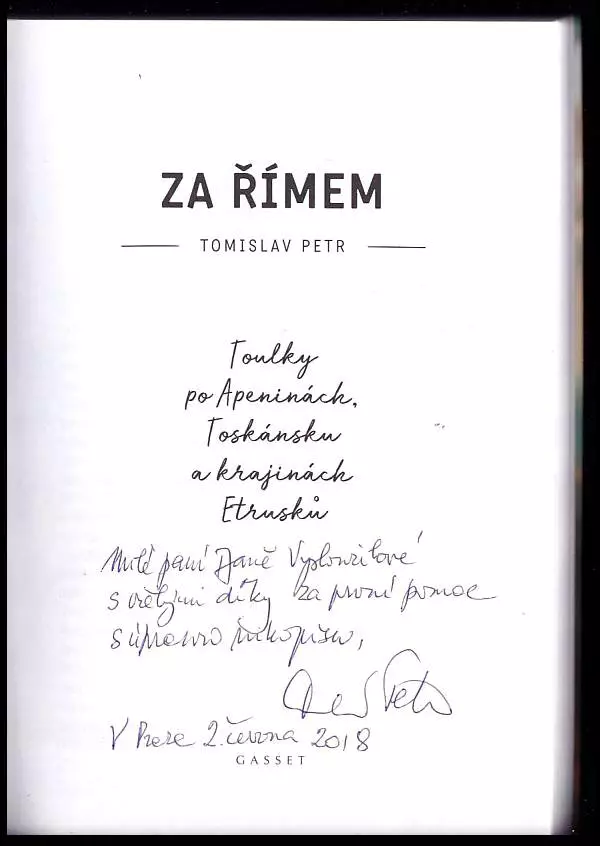 ZA ŘÍMEM
TOMISLAV PETR
Toulky
po Apeninách,
Toskánsku
a krajinách
Etrusků
Milé paní Janě Vyplouzilové
s vřelými díky za první pomoc
s úpravou rukopisu,
Petr
V Praze 2. června 2018
GASSET